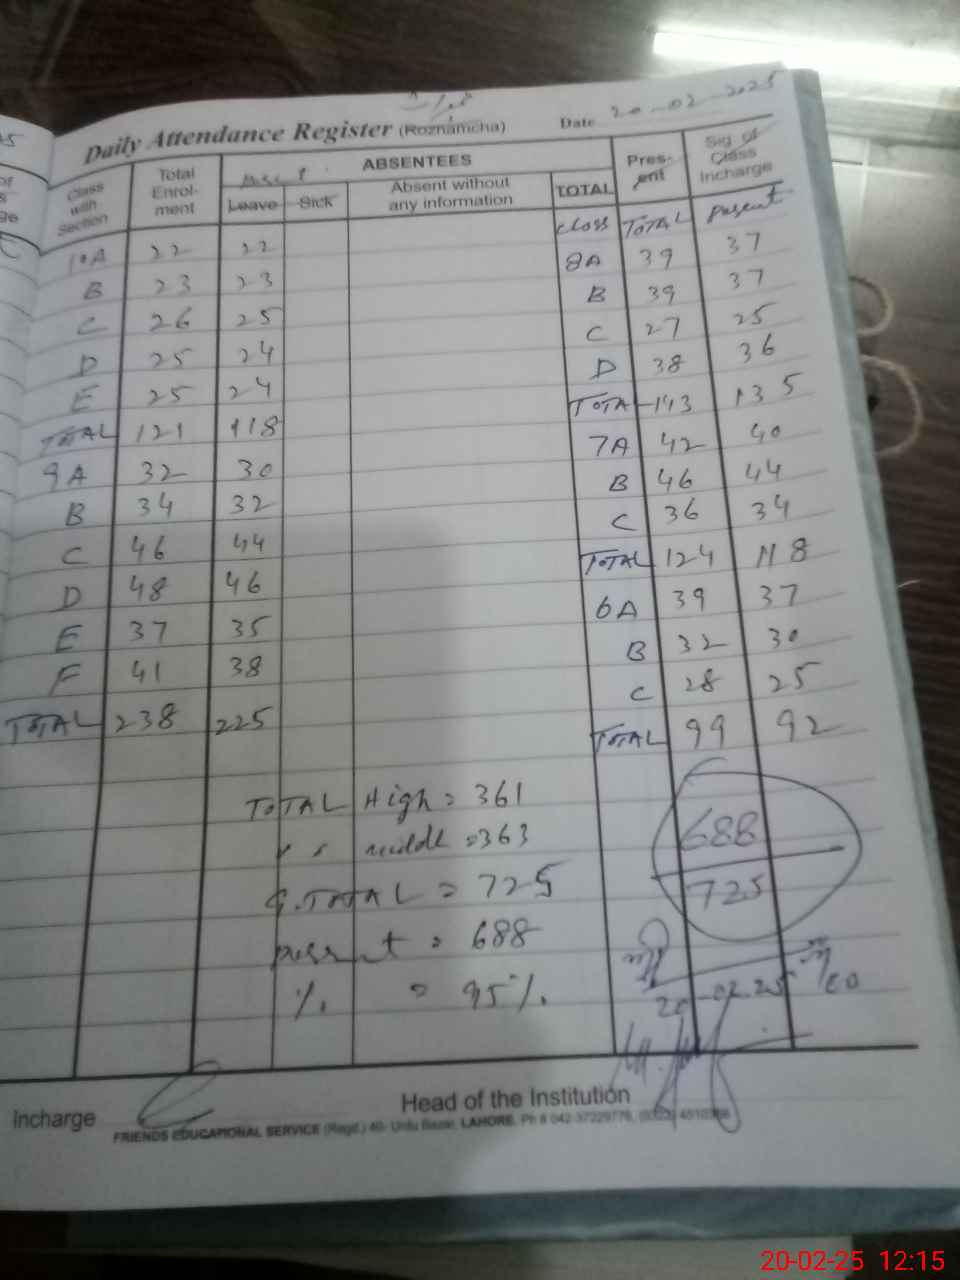 20-02-2025
Daily Attendance Register (Roznamcha) Date
ABSENTEES
Class with Section Total Enrol-ment Leave Sick Absent without any information TOTAL Pres-ent Sig. of Class Incharge
class TOTAL present
10A 22 22 8A 39 37
B 23 23 B 39 37
C 26 25 C 27 25
D 25 24 D 38 36
E 25 24 TOTAL 143 135
TOTAL 121 118 7A 42 40
9A 32 30 B 46 44
B 34 32 C 36 34
C 46 44 TOTAL 124 118
D 48 46 6A 39 37
E 37 35 B 32 30
F 41 38 C 28 25
TOTAL 238 225 TOTAL 99 92
TOTAL High = 361
middle = 363
G.TOTAL = 725
present = 688
% = 95%
688
725
20-02-25
Incharge
Head of the Institution
FRIENDS EDUCATIONAL SERVICE (Regd.) 40- Urdu Bazar, LAHORE. Ph # 042-37229776,
20-02-25 12:15